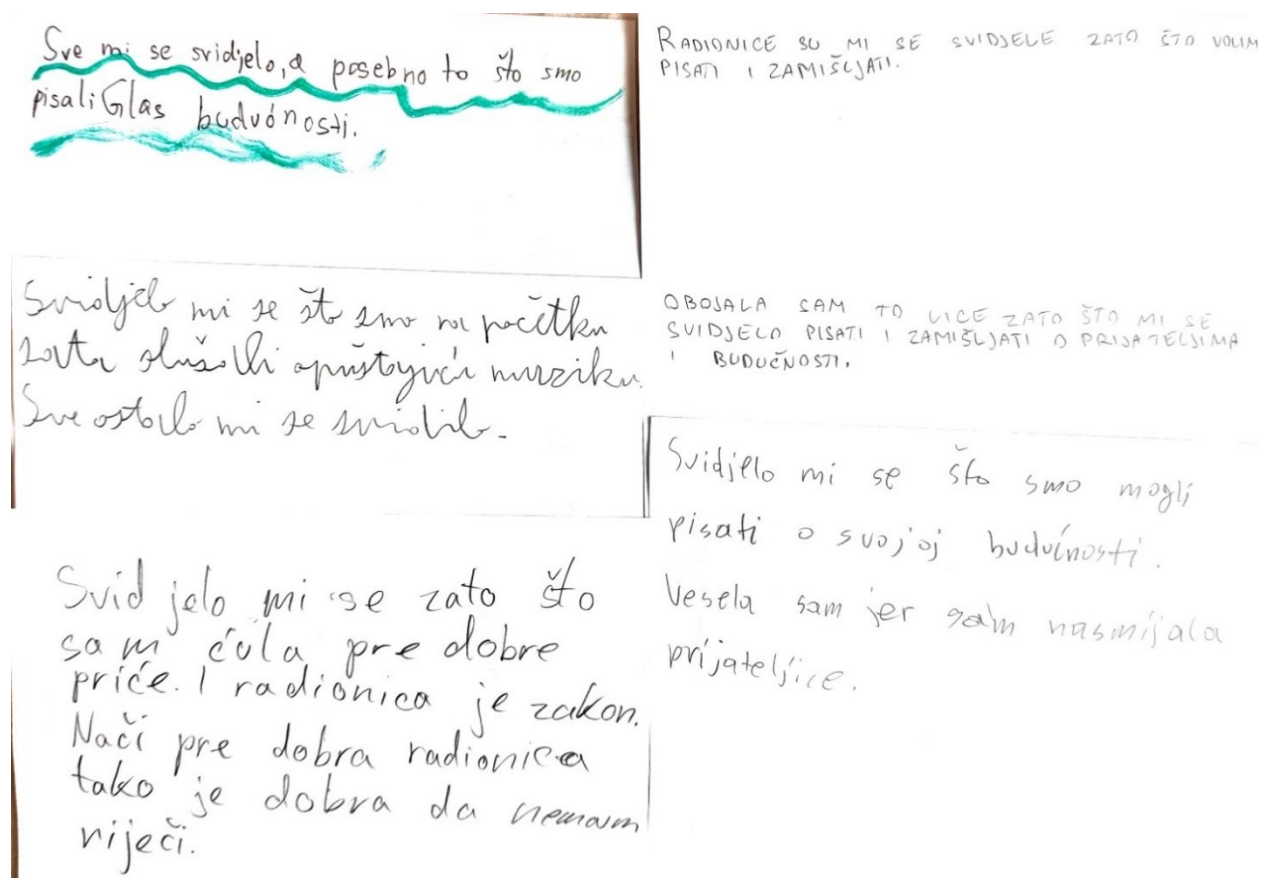 Sve mi se svidjelo, a posebno to što smo
pisali Glas buduónosti.
Svidjelo mi se što smo na početku
sata slušali opuštajuću muziku.
Sve ostalo mi se svidilo.
Svidjelo mi se zato što
sam ćula pre dobre
priće. I radionica je zakon.
Nači pre dobra radionica
tako je dobra da nemam
riječi.
RADIONICE SU MI SE SVIDJELE ZATO ŠTO VOLIM
PISATI I ZAMIŠLJATI.
OBOJALA SAM TO LICE ZATO ŠTO MI SE
SVIDJELO PISATI I ZAMIŠLJATI O PRIJATELJIMA
I BUDUČNOSTI.
Svidjelo mi se što smo mogli
pisati o svojoj budućnosti.
Vesela sam jer sam nasmijala
prijateljice.